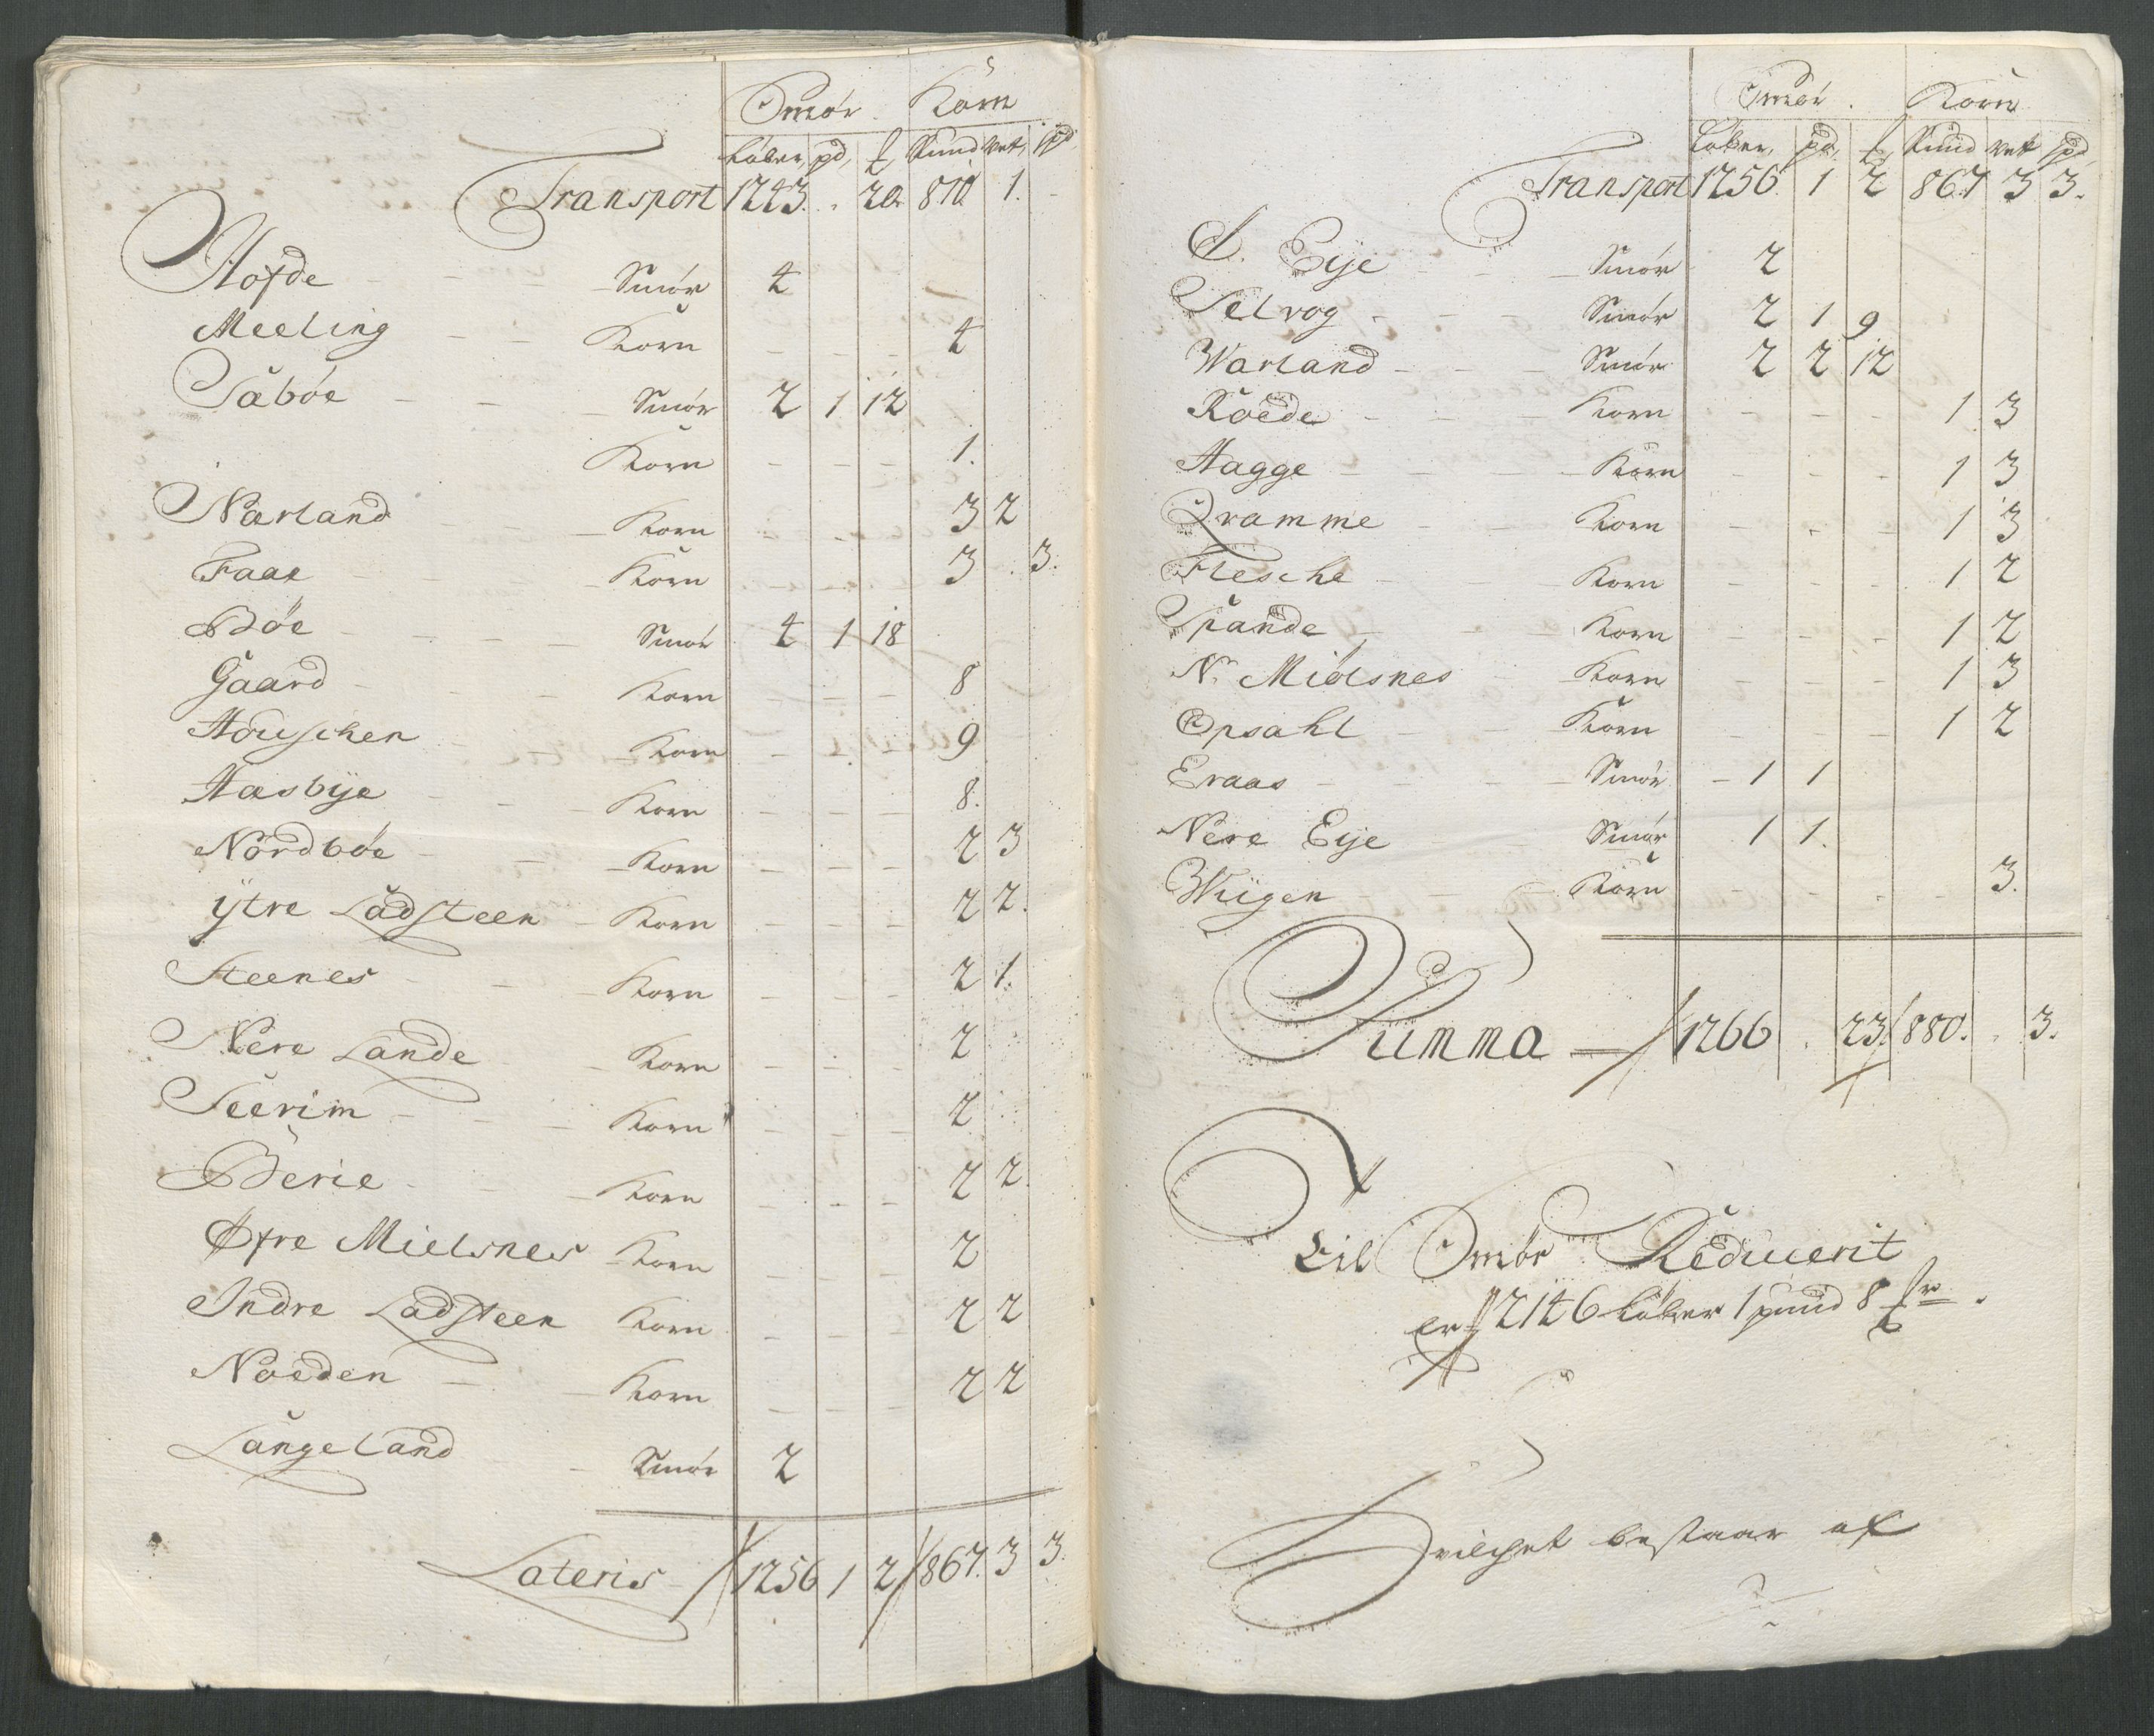 Smör. Korn
Löber, pd, ℔, Pund vet, spd
Transport 1243. . 20. 810 1. -
Hofde - - - Smör 4
Meeling - - - Korn - - - 4
Säböe - - - Smör 2 1 12
Korn - - - 1.
Nærland - Korn - - - 3 2
Faae - - Korn 3 . 3.
Böe - - - Smör 4 1 18
Gaard - - - Korn - - - 8
Houschen - Korn - - - 9
Hasbÿe - - - Korn - - - 8.
Nordböe - - Korn - - - 2 3
ÿtre Ladsteen - Korn - - - 2 2.
Steenes - - - Korn - - - 2 1.
Nere Lande - Korn - - - 2
Seerim - - - Korn - - - 2
Berie - - - Korn - - - 2 2.
Øfre Mielsnes Korn - - - 2
Indre Ladsteen Korn - - - 2 2
Noeden - - Korn - - - 2 2
Langeland - Smör 2
Lateris - 1256 1 2 867. 3 3.
Smör. Korn
Löber, pd, ℔, Pund vet spd
Transport 1256. 1 2 867 3 3.
S. Eÿe - - - Smör 2
Selvog - - - Smör 2 1 9
Warland - - - Smör 2 2 12
Roede - - - Korn - - - 1 3
Hagge - - - Korn - - - 1 3
Qvamme - - Korn - - - 1 3
Flesche - - Korn - - - 1 2
Spande - - Korn - - - 1 2
N. Miölsnes - Korn - - - 1 3
Opsahl - - Korn - - - 1 2
Eraas - - - Smör - 1 1
Nere Eÿe - Smör 1 1.
Wiigen - - Korn - - - - 3.
Summa - 1266 . 23. 880. . 3.
Til Smör Reducerit
er 2146 Löber 1 pund 8 ℔r.
Hvilchet bestaar af